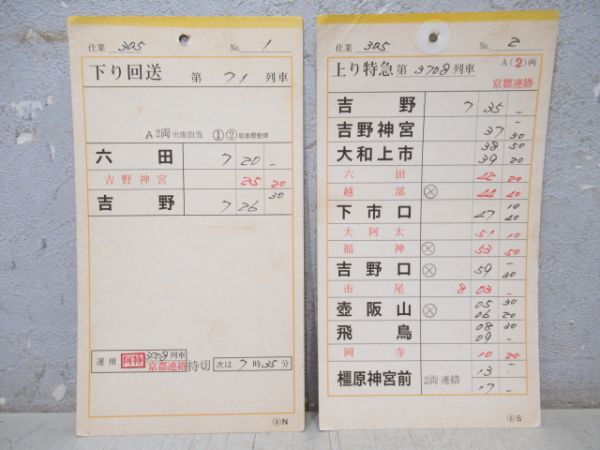 仕業 305 No. 1
下り回送 第 71 列車
A 2両 出庫担当 ①②
六田 7 20 -
吉野神宮 25 20
吉野 7 26 30
運用 阿特 3708列車 京都連絡 待切 次は 7 時 35 分
N
仕業 305 No. 2
上り特急 第 3708 列車 A(2)両
京都連絡
吉野 7 35 -
吉野神宮 37 30
大和上市 38 50
39 20
六田 42 20
越部 ⊗ 44 40
下市口 10
47 40
大阿太 51 10
福神 ⊗ 53 50
吉野口 ⊗ 59 -
30
市尾 8 03 -
壺阪山 ⊗ 05 30
06 20
飛鳥 08 30
09 -
岡寺 10 20
橿原神宮前 2両 連絡 13 -
17 -
S